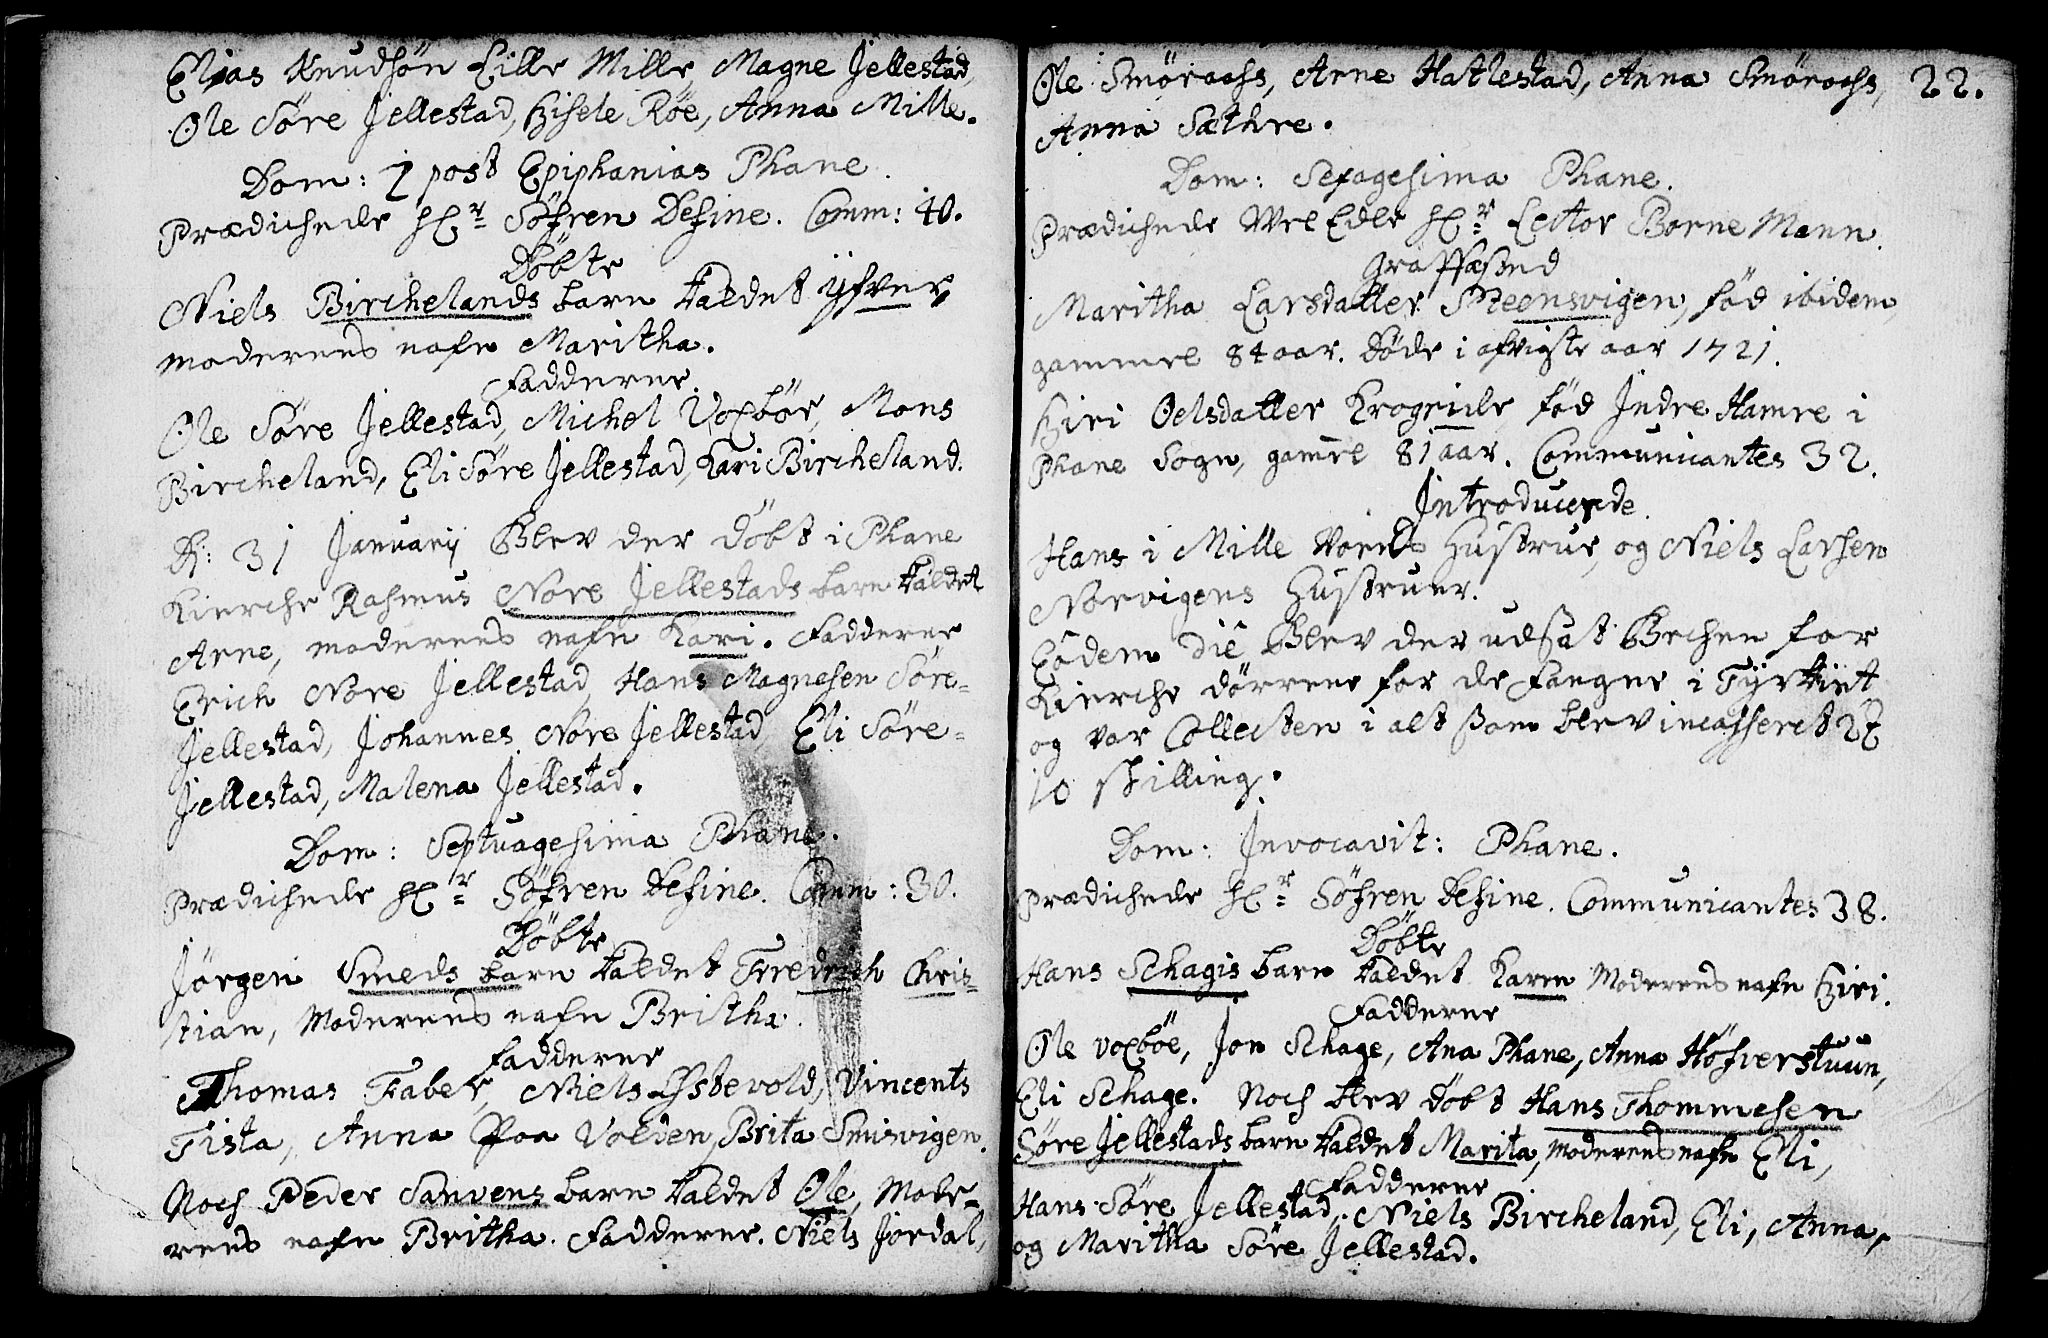 Elias Knudsøn Lille Mille, Magne Jellestad,
Ole Søre Jellestad, Gisele Røe, Anna Mille.
Dom: 2 post Epiphanias Phane.
Prædichede Hr. Söfren Desine. Comm: 40.
Döbte
Niels Birchelands barn kaldet ijfver
moderens nafn Maritha.
Fadderne
Ole Søre Jellestad, Michel Voxböe, Mons
Bircheland, Eli Søre Jellestad, Kari Bircheland.
D: 31 Januarij Blev der döbt i Phane
Kierche Rasmus Nore Jellestads barn kaldet
Arne, moderens nafn Kari. Fadderne
Erich Nore Jellestad, Hans Magnesen Søre-
Jellestad, Johannes Nore Jellestad, Eli Søre-
Jellestad, Malena Jellestad.
Dom: Septuagesima Phane.
Prædichede Hr. Söfren Desine. Comm: 30.
Döbte
Jørgen Smeds barn kaldet Friedrich Chris-
tian, Moderens nafn Britha.
Fadderne
Thomas Faber, Niels Ystevold, Vincents
Tista, Anna Paa Volden, Brita Smisvigen.
Noch Peder Sanvens barn kaldet Ole, Mode-
rens nafn Britha. Fadderne. Niels Jordal,
Ole Smøraahs, Arne Hatlestad, Anna Smøraahs, 22.
Anna Sæthre.
Dom: Sexagesima Phane.
Prædichede Vel Edle Hr. Lector Borneman.
Graffæstnd
Maritha Larsdatter Steensvigen, föd ibidem,
gammel 84 aar. döde i afvigte aar 1721.
Giri Oelsdatter Krogeide, föd Jndre Hamre i
Phane Sogn, gam̅el 81 aar. Communicantes 32.
Introducerede.
Hans i Mille Hustrue, og Niels Larsen
Norvigens Hustruer.
Eodem die Blev der udsat Bechen for
Kierche dörrene for de fangne i Tyrkiet
og var Collecten i alt som blev incasseret 2
10 skilling.
Dom: Invocavit: Phane.
Prædichede Hr. Söfren Desine. Communicantes 38.
Döbte
Hans Schagis barn kaldet Karen Moderens nafn Giri.
Fadderne
Ole voxböe, Jon Schage, Ana Phane, Anna Höfverstuun,
Eli Schage. Noch blev döbt Hans Thommesen
Søre Jellestads barn kaldet Marita, Moderens nafn Eli,
Fadderne
Hans Søre Jellestad, Niels Bircheland, Eli, Anna,
og Maritha Søre Jellestad.